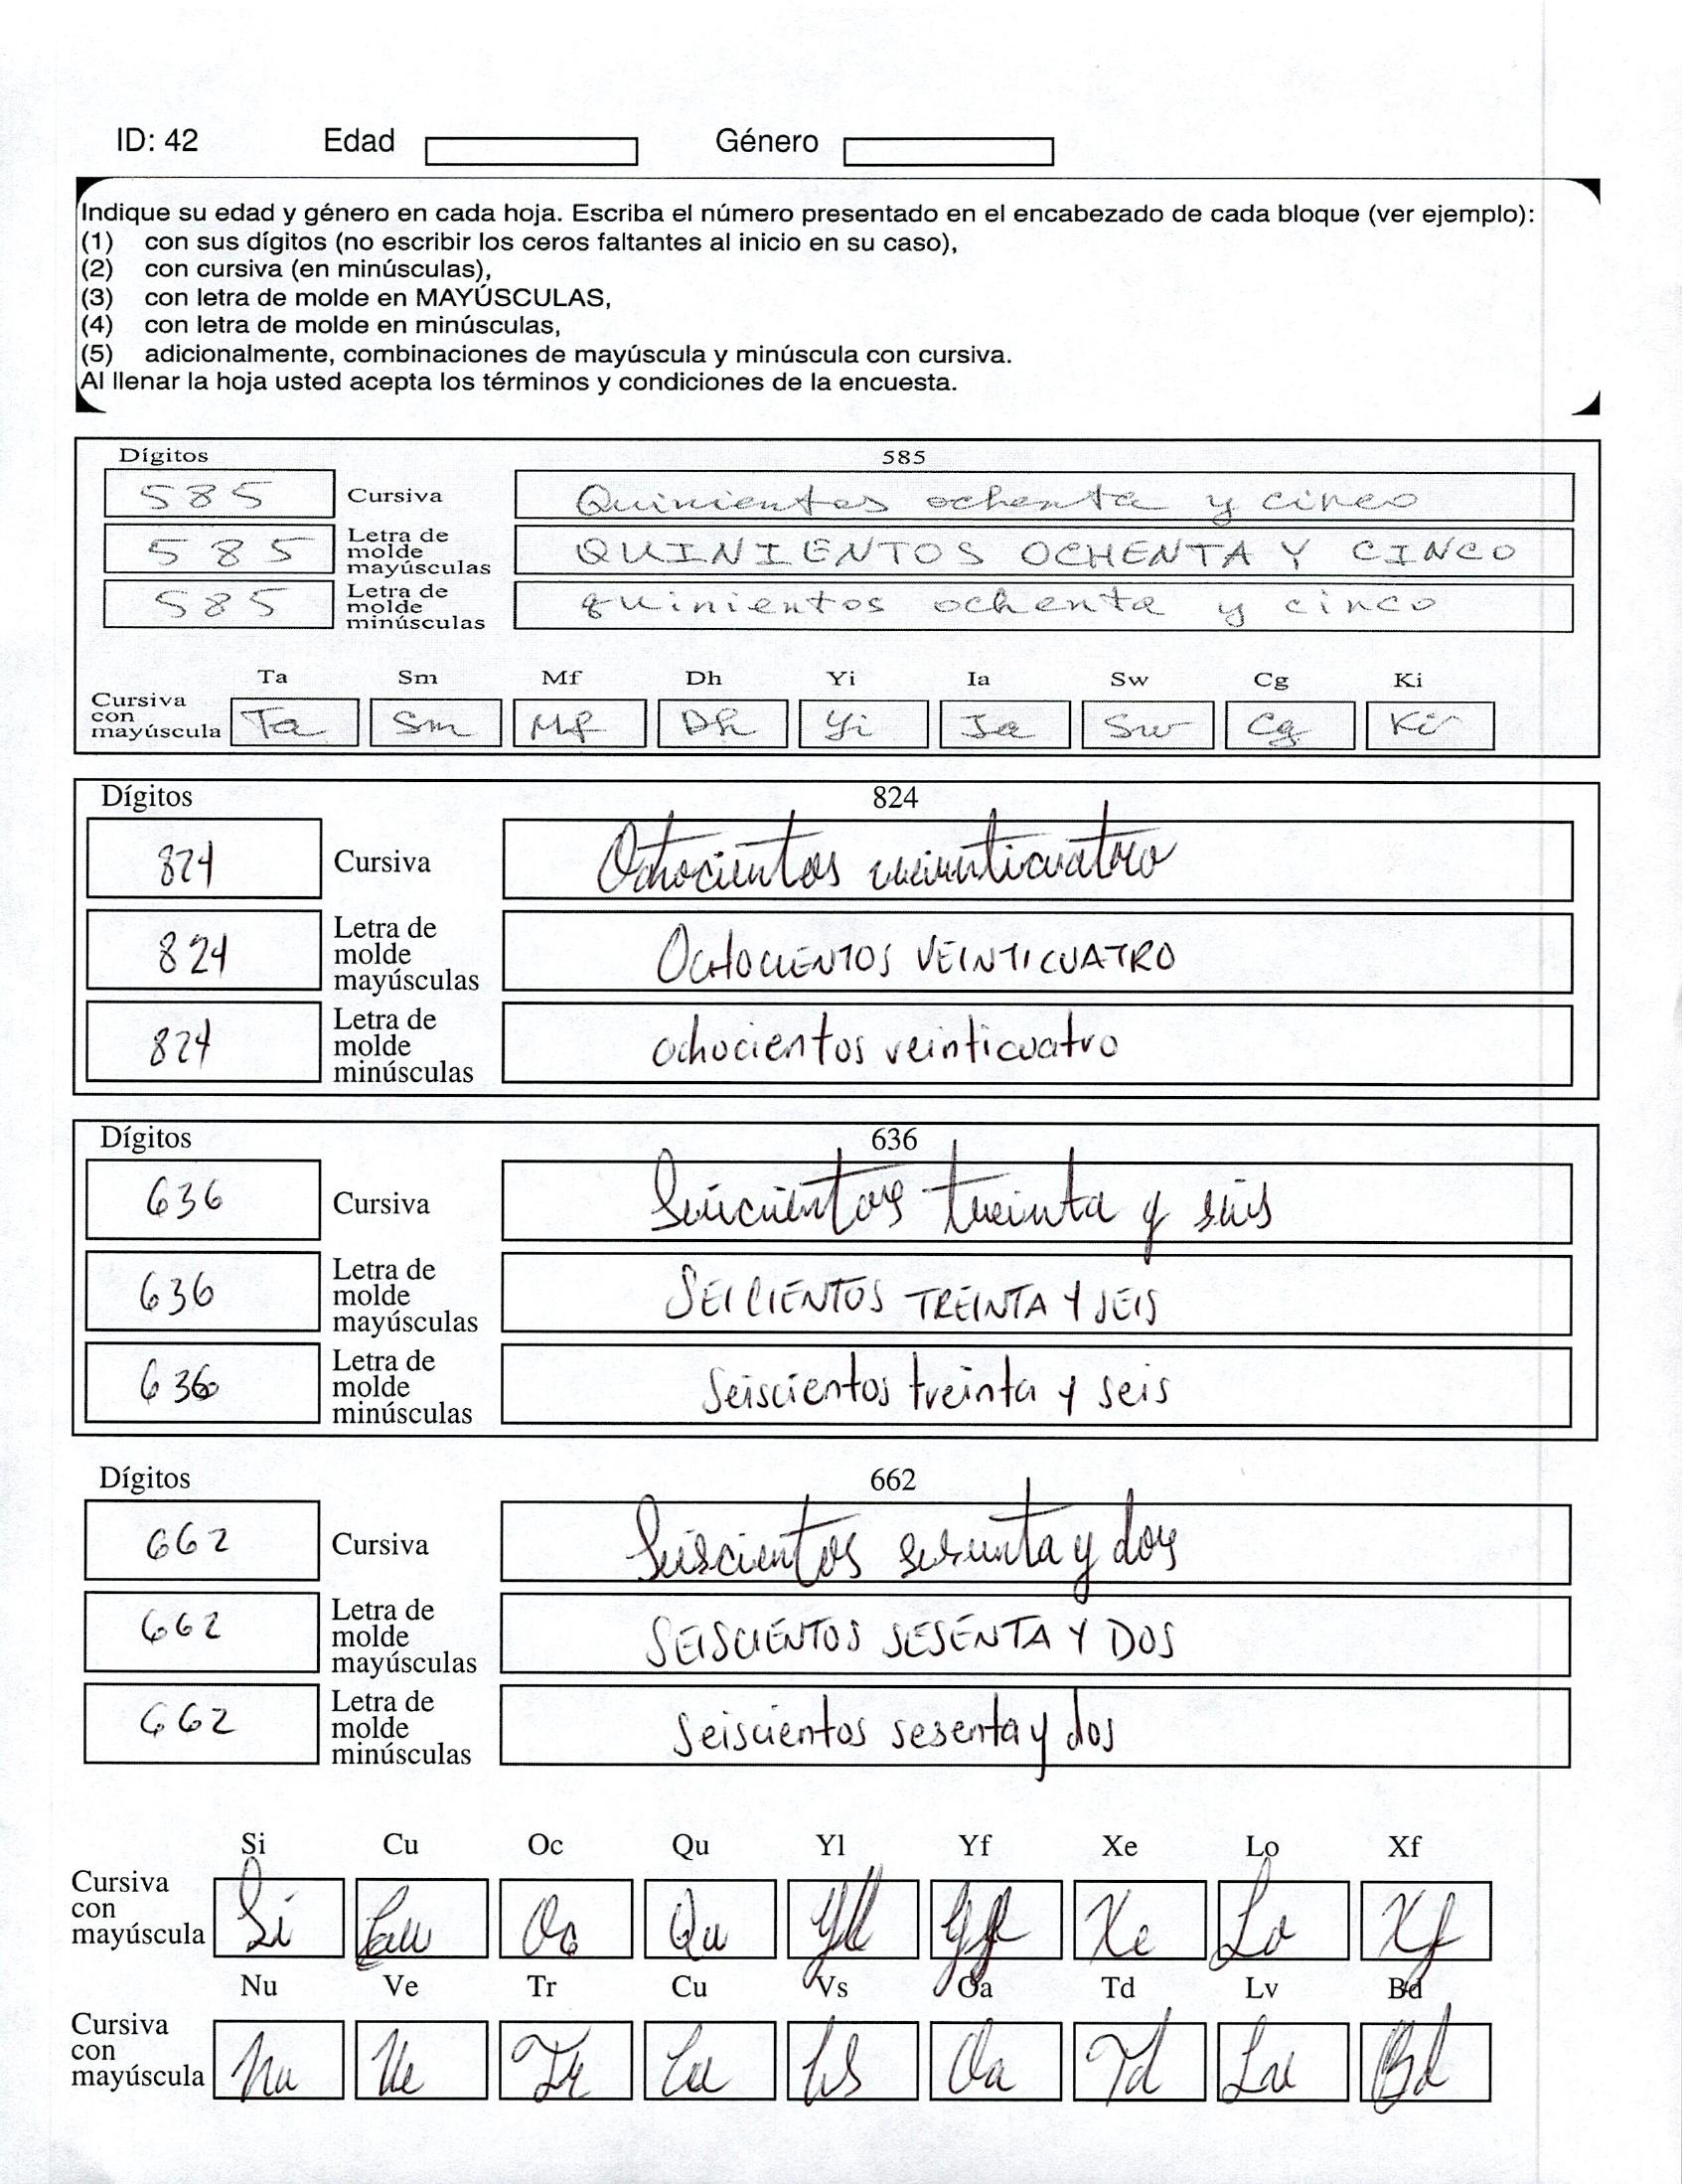 ID: 42 Edad Género
Indique su edad y género en cada hoja. Escriba el número presentado en el encabezado de cada bloque (ver ejemplo):
(1) con sus dígitos (no escribir los ceros faltantes al inicio en su caso),
(2) con cursiva (en minúsculas),
(3) con letra de molde en MAYÚSCULAS,
(4) con letra de molde en minúsculas,
(5) adicionalmente, combinaciones de mayúscula y minúscula con cursiva.
Al llenar la hoja usted acepta los términos y condiciones de la encuesta.
Dígitos 585
585 Cursiva Quinientos ochenta y cinco
585 Letra de molde mayúsculas QUINIENTOS OCHENTA Y CINCO
585 Letra de molde minúsculas quinientos ochenta y cinco
Ta Sm Mf Dh Yi Ia Sw Cg Ki
Cursiva con mayúscula Ta Sm Mf Dh Yi Ia Sw Cg Ki
Dígitos 824
824 Cursiva Ochocientos veinticuatro
824 Letra de molde mayúsculas OCHOCIENTOS VEINTICUATRO
824 Letra de molde minúsculas ochocientos veinticuatro
Dígitos 636
636 Cursiva Seiscientos treinta y seis
636 Letra de molde mayúsculas SEICIENTOS TREINTA Y SEIS
636 Letra de molde minúsculas Seiscientos treinta y seis
Dígitos 662
662 Cursiva Seiscientos sesenta y dos
662 Letra de molde mayúsculas SEISCIENTOS SESENTA Y DOS
662 Letra de molde minúsculas Seiscientos sesenta y dos
Si Cu Oc Qu Yl Yf Xe Lo Xf
Cursiva con mayúscula Si Cu Oc Qu Yl Yf Xe Lo Xf
Nu Ve Tr Cu Vs Oa Td Lv Bd
Cursiva con mayúscula Nu Ve Tr Cu Vs Oa Td Lv Bd